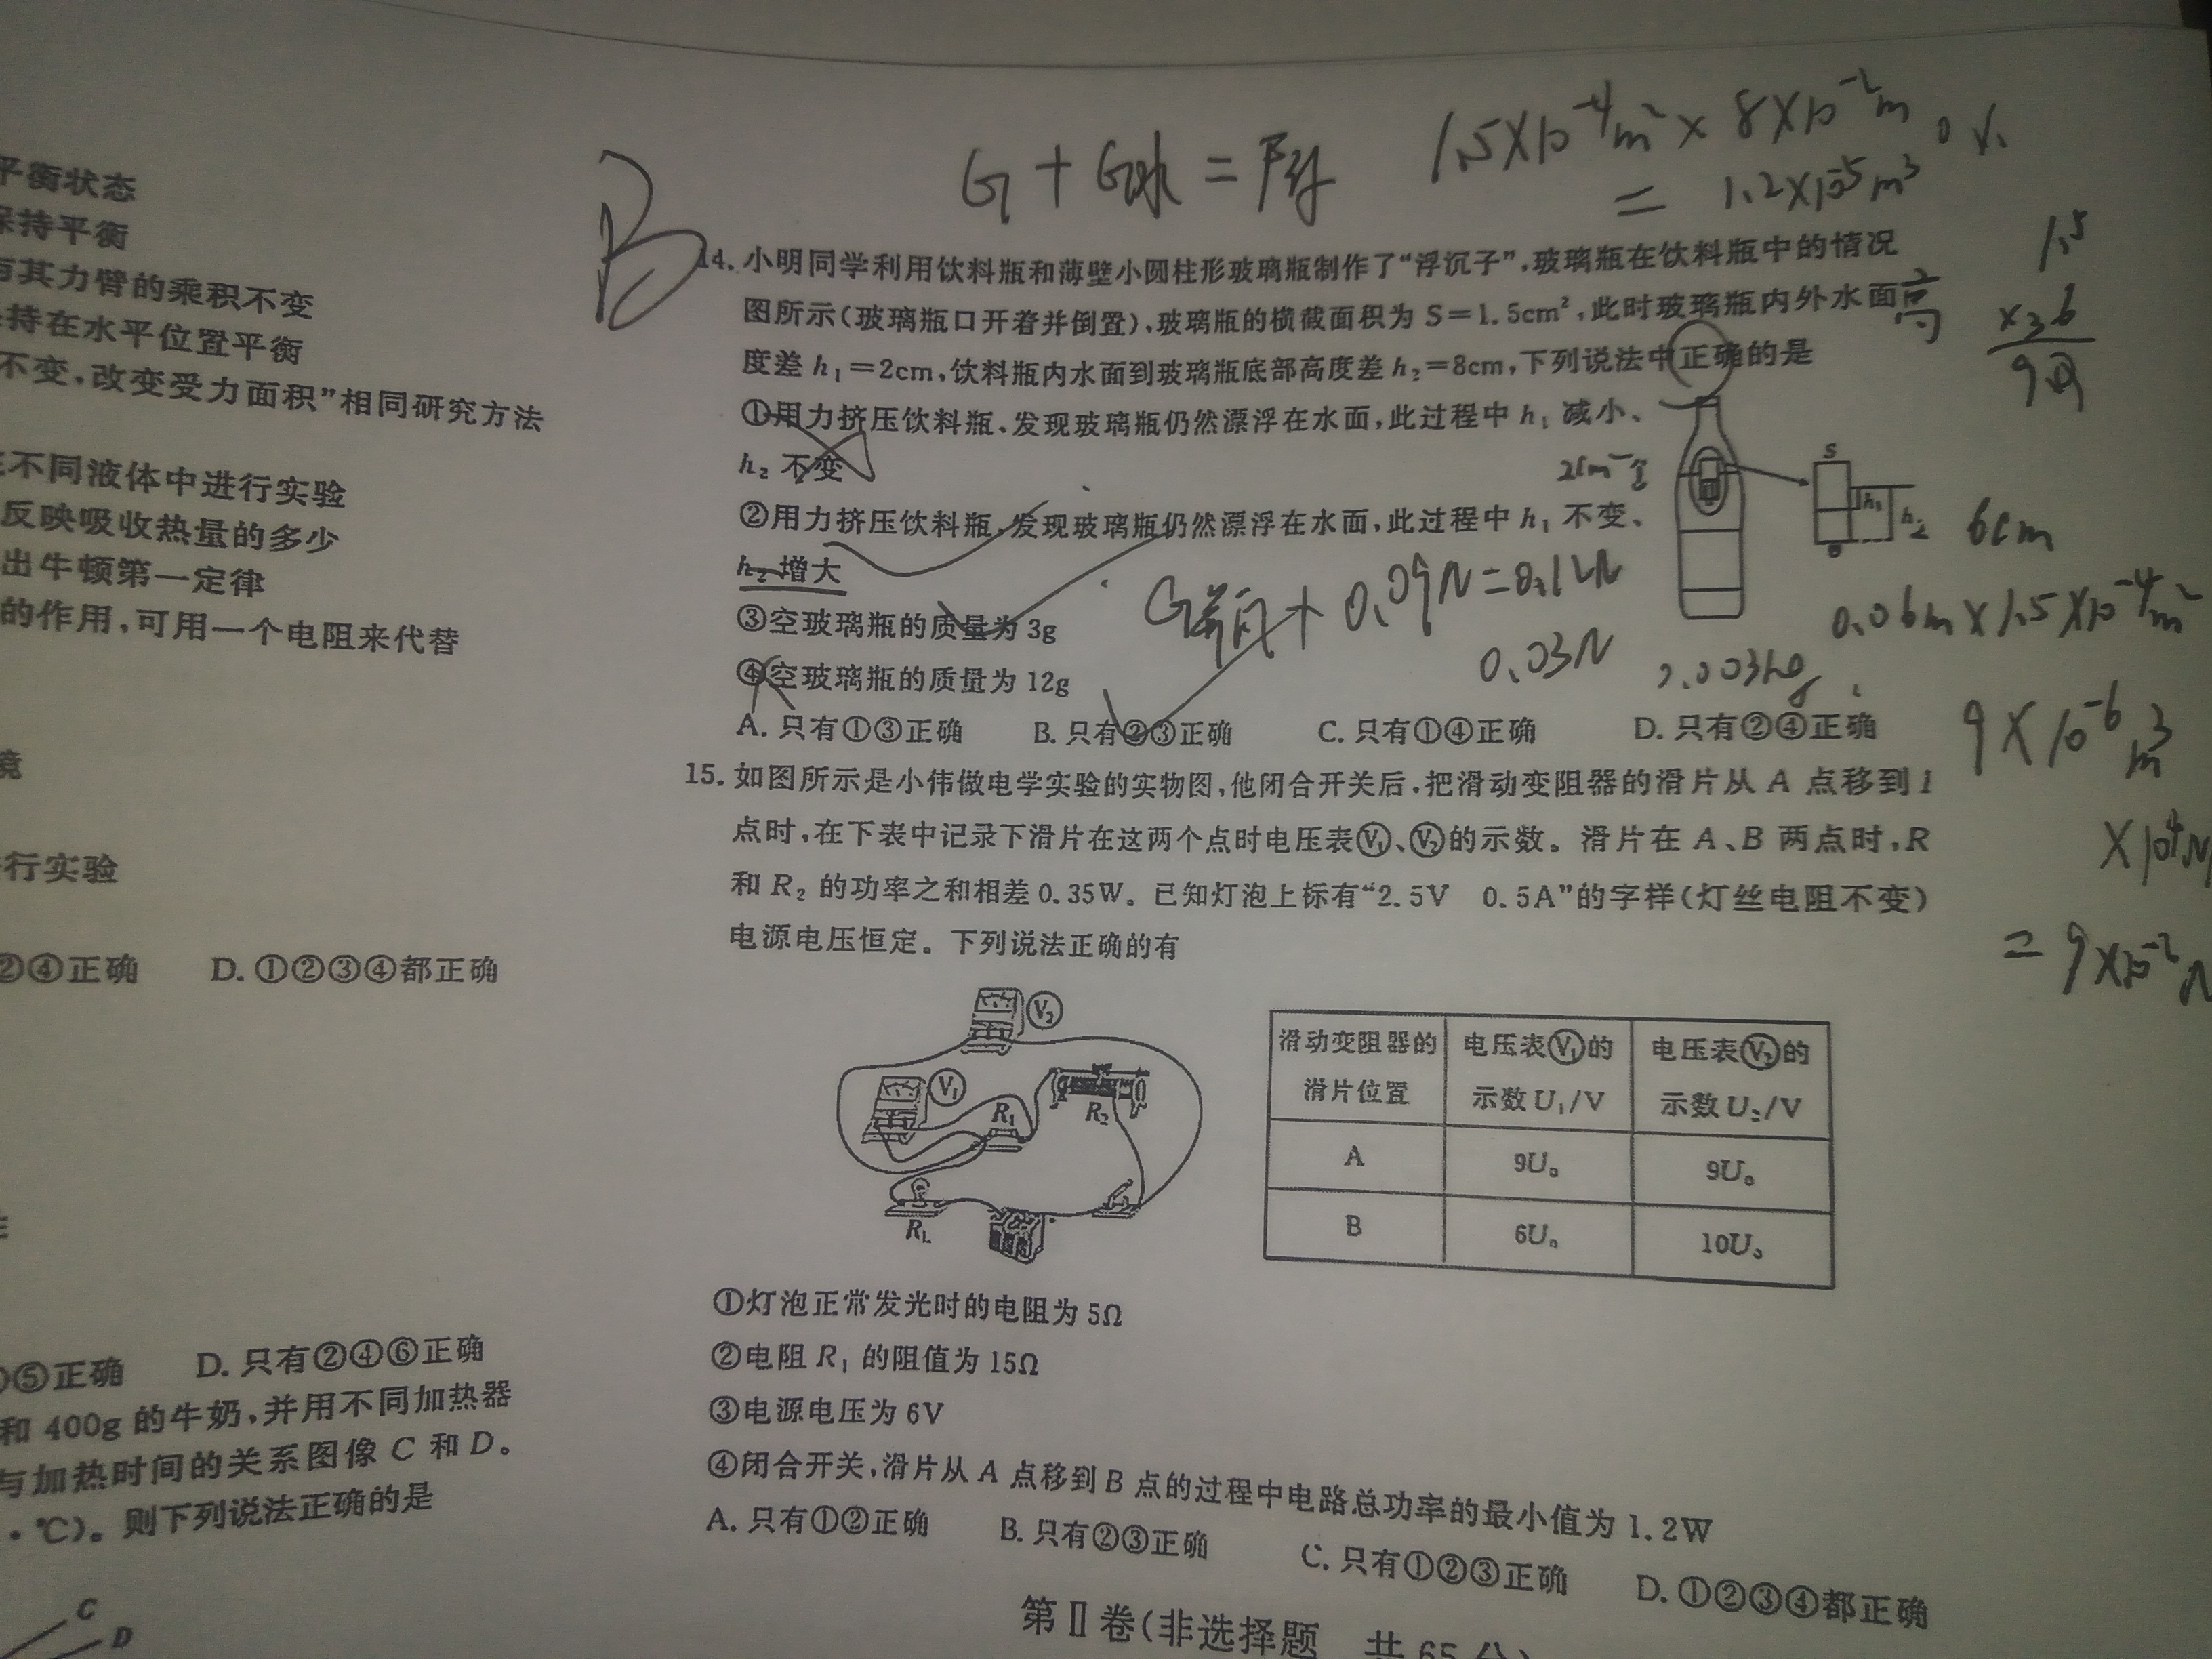 平衡状态
保持平衡
与其力臂的乘积不变
持在水平位置平衡
不变,改变受力面积”相同研究方法
不同液体中进行实验
反映吸收热量的多少
出牛顿第一定律
的作用,可用一个电阻来代替
行实验
②④正确 D. ①②③④都正确
⑤正确 D. 只有②④⑥正确
和 400g 的牛奶,并用不同加热器
与加热时间的关系图像 C 和 D。
·℃)。则下列说法正确的是
C
D
B
G + G水 = F浮
1.5×10⁻⁴m² × 8×10⁻²m
= 1.2×10⁻⁵m³
14. 小明同学利用饮料瓶和薄壁小圆柱形玻璃瓶制作了“浮沉子”,玻璃瓶在饮料瓶中的情况
图所示(玻璃瓶口开着并倒置),玻璃瓶的横截面积为 S=1.5cm²,此时玻璃瓶内外水面高
度差 h₁=2cm,饮料瓶内水面到玻璃瓶底部高度差 h₂=8cm,下列说法中正确的是
①用力挤压饮料瓶,发现玻璃瓶仍然漂浮在水面,此过程中 h₁ 减小、
h₂ 不变
②用力挤压饮料瓶,发现玻璃瓶仍然漂浮在水面,此过程中 h₁ 不变、
h₂ 增大
③空玻璃瓶的质量为 3g
④空玻璃瓶的质量为 12g
A. 只有①③正确 B. 只有②③正确 C. 只有①④正确 D. 只有②④正确
S
h₁
h₂
1.5
6cm
0.06m×1.5×10⁻⁴m²
9×10⁻⁶m³
×10⁴N
=9×10⁻²N
+0.09N=0.12N
0.03N
15. 如图所示是小伟做电学实验的实物图,他闭合开关后,把滑动变阻器的滑片从 A 点移到
点时,在下表中记录下滑片在这两个点时电压表Ⓥ₁、Ⓥ₂的示数。滑片在 A、B 两点时,R
和 R₂ 的功率之和相差 0.35W。已知灯泡上标有“2.5V 0.5A”的字样(灯丝电阻不变)
电源电压恒定。下列说法正确的有
V₂
V₁
R₁
R₂
R_L
滑动变阻器的滑片位置 电压表Ⓥ₁的示数 U₁/V 电压表Ⓥ₂的示数 U₂/V
A 9U₀ 9U₀
B 6U₀ 10U₀
①灯泡正常发光时的电阻为 5Ω
②电阻 R₁ 的阻值为 15Ω
③电源电压为 6V
④闭合开关,滑片从 A 点移到 B 点的过程中电路总功率的最小值为 1.2W
A. 只有①②正确 B. 只有②③正确 C. 只有①②③正确 D. ①②③④都正确
第Ⅱ卷(非选择题 共 65 分)